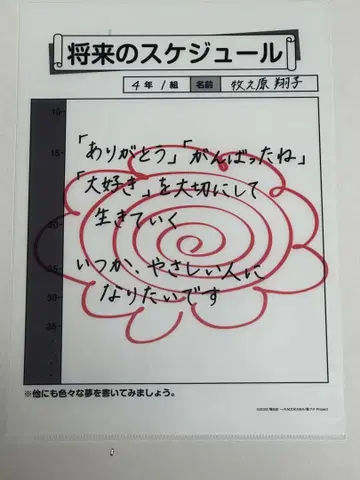 将来のスケジュール
4年 1組 名前 牧之原 翔子
10
15
「ありがとう」「がんばったね」
「大好き」を大切にして
生きていく
いつか、やさしい人に
なりたいです
30
35
※他にも色々な夢を書いてみましょう。